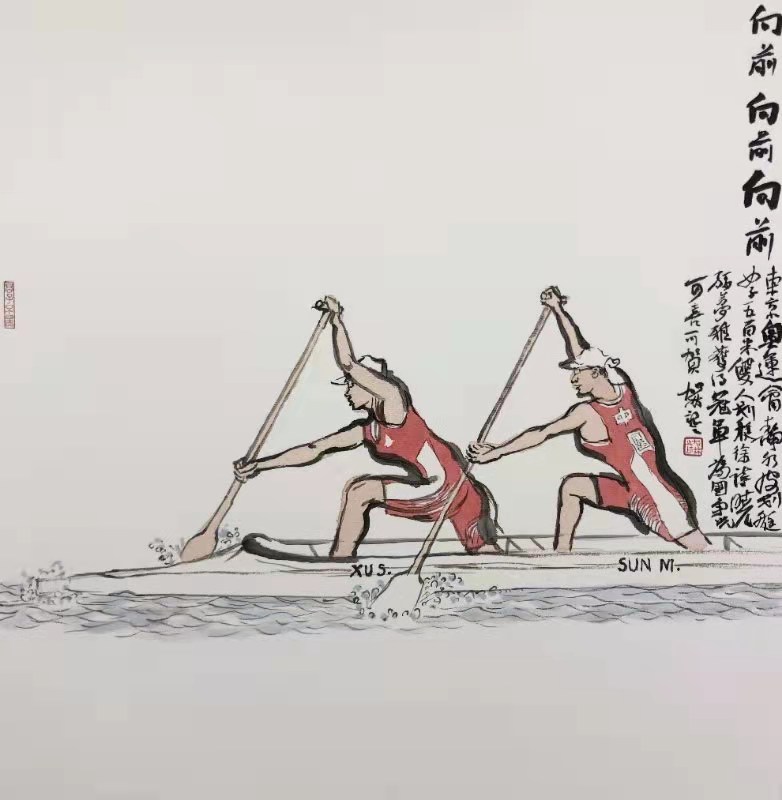 向前向前向前
東京奥運會靜水皮划艇
女子五百米雙人划艇徐诗晓
孫夢雅獲得冠軍為國争光
可喜可賀
中
XU S.
SUN M.